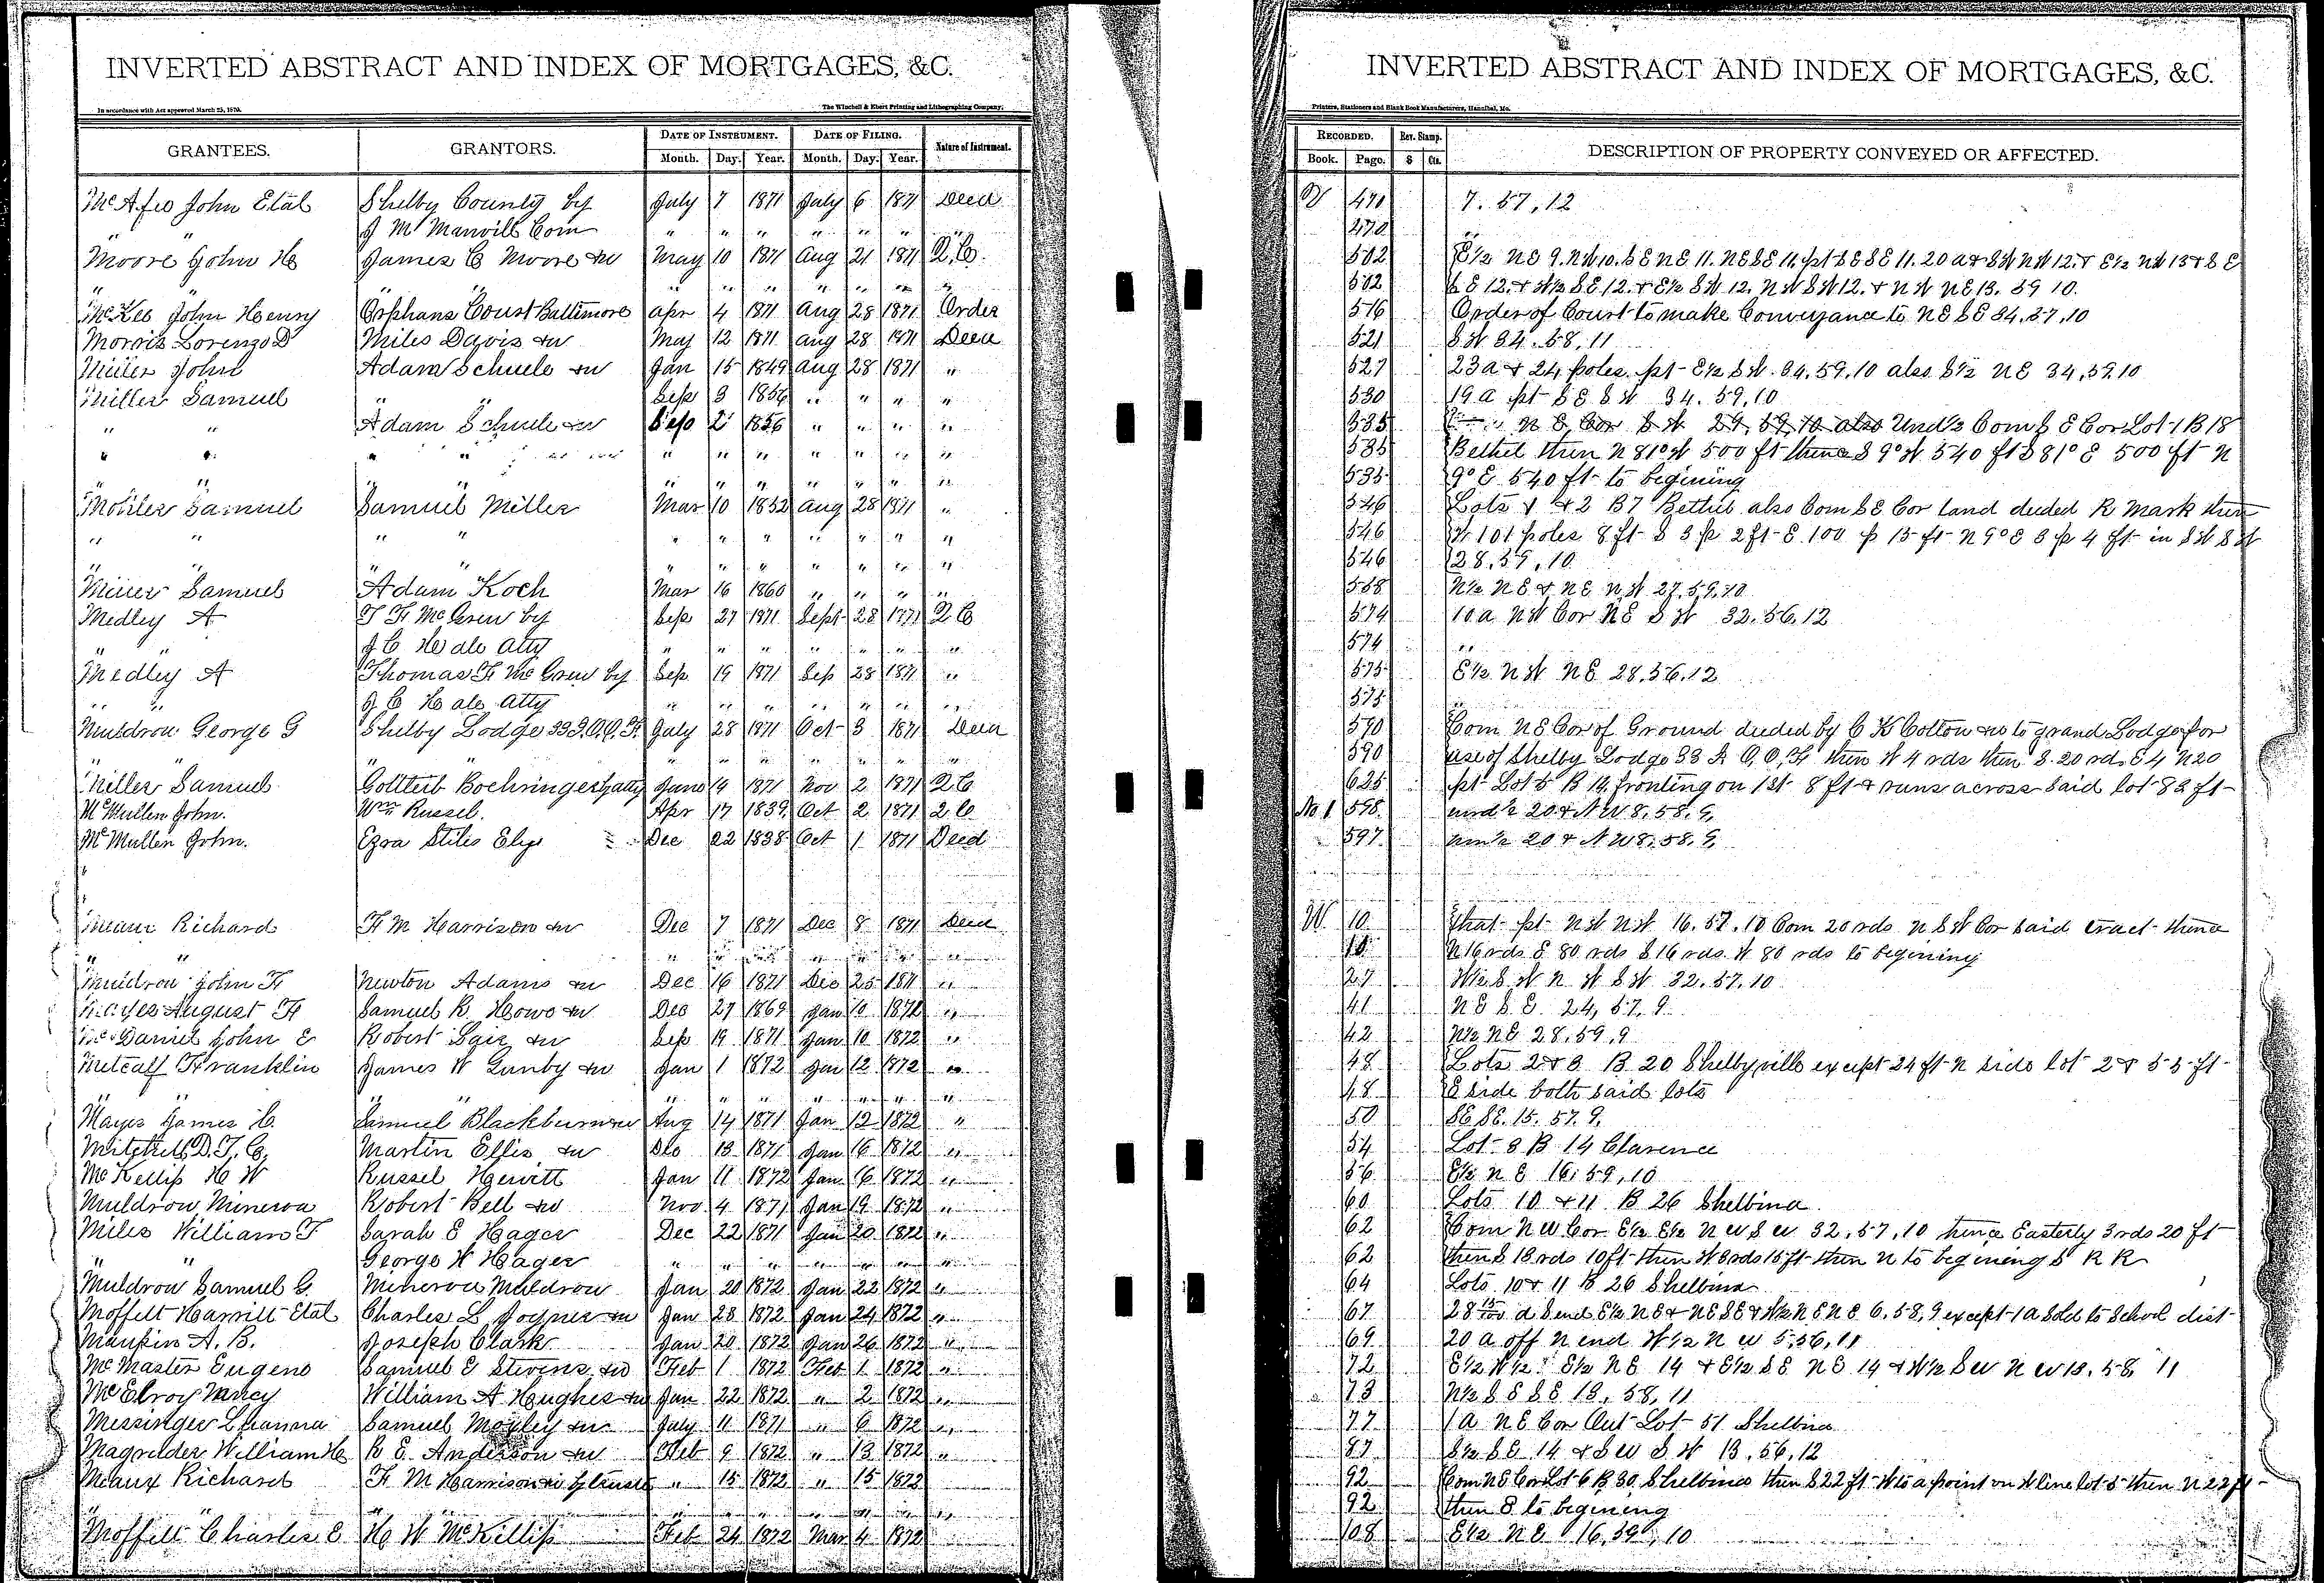 INVERTED ABSTRACT AND INDEX OF MORTGAGES, &C.
In accordance with Act approved March 25, 1870.
The Winchell & Ebert Printing and Lithographing Company,
GRANTEES. GRANTORS. DATE OF INSTRUMENT. DATE OF FILING. Nature of Instrument.
Month. Day. Year. Month. Day. Year.
McAfee John Etal Shelby County by July 7 1871 July 6 1871 Deed
" " J M Manvill Com " " " " " " "
Moore John H James C Moore &w May 10 1871 Aug 21 1871 Q.C.
" " " " " " " " "
McKee John Henry Orphans Court Baltimore Apr 4 1871 Aug 28 1871 Order
Morris Lorenzo D Miles Davis &w May 12 1871 Aug 28 1871 Deed
Miller John Adam Schuele &w Jan 15 1849 Aug 28 1871 "
Miller Samuel " Sep 3 1856 " " " "
" " Adam Schuele &w Sep 2 1856 " " " "
" " " " " " " " " " "
" " " " " " " "
Mohler Samuel Samuel Miller Mar 10 1852 Aug 28 1871 "
" " " " " " " " " " "
" " " " " " " " "
Miller Samuel Adam Koch Mar 16 1860 " " " "
Medley A T F McGrew by Sep 27 1871 Sept 28 1871 Q C
" J C Hale Atty " " " " " " "
Medley A Thomas F McGrew by Sep 19 1871 Sep 28 1871 "
" " J C Hale Atty " " " " " " "
Muldrow George G Shelby Lodge 33 I.O.O.F. July 28 1871 Oct 3 1871 Deed
" " " " " " " " "
Miller Samuel Gottleib Boehringer by atty June 19 1871 Nov 2 1871 Q C
McMullen John. Wm Russel. Apr 17 1839 Oct 2 1871 Q C
McMullen John. Ezra Stiles Ely Dec 22 1838 Oct 1 1871 Deed
Meaux Richard F M Harrison &w Dec 7 1871 Dec 8 1871 Deed
" " " " " " " " "
Muldrow John F Newton Adams &w Dec 16 1871 Dec 25 1871 "
August F Samuel R Howe &w Dec 27 1869 Jan 10 1872 "
McDaniel John E Robert Lair &w Sep 19 1871 Jan 10 1872 "
Metcalf Franklin James W Gunby &w Jan 1 1872 Jan 12 1872 "
" " " " " " " " "
Mayes James C. Samuel Blackburn &w Aug 14 1871 Jan 12 1872 "
Mitchell D.T.C. Martin Ellis &w Dec 13 1871 Jan 16 1872 "
McKellip H W Russel Hewitt Jan 11 1872 Jan 16 1872 "
Muldrow Minerva Robert Bell &w Nov 4 1871 Jan 19 1872 "
Miles William T Sarah E Hager Dec 22 1871 Jan 20 1872 "
" " George W Hager " " " " " " "
Muldrow Samuel G. Minerva Muldrow Jan 20 1872 Jan 22 1872 "
Moffett Harriet Etal Charles L Joyner &w Jan 23 1872 Jan 24 1872 "
Maupin A. B. Joseph Clark Jan 20 1872 Jan 26 1872 "
McMaster Eugene Samuel E Stevens &w Feb 1 1872 Feb 1 1872 "
McElroy Nancy William A Hughes &w Jan 22 1872 " 2 1872 "
Messinger Lhanna Samuel Moxley &w July 11 1871 " 6 1872 "
Magruder William H R E Anderson &w Feb 9 1872 " 13 1872 "
Meaux Richard F M Harrison &w by trustee " 15 1872 " 15 1872
" " " " " " " " "
Moffett Charles E H W McKillip Feb 24 1872 Mar 4 1872
INVERTED ABSTRACT AND INDEX OF MORTGAGES, &C.
Printers, Stationers and Blank Book Manufacturers, Hannibal, Mo.
RECORDED. Rev. Stamp. DESCRIPTION OF PROPERTY CONVEYED OR AFFECTED.
Book. Page. $ Cts.
V 470 7. 57, 12
470 "
502 E½ NE 9. NW 10. SE NE 11. NE SE 11, pt SE SE 11. 20 a & SW NW 12. & E½ NW 13 & SE
502 SE 12. & W½ SE 12. & E½ SW 12. NW SW 12. & NW NE 13. 59 10.
516 Order of Court to make Conveyance to NE SE 34, 57, 10
521 SW 34. 58, 11
527 23a & 24 poles. pt E½ SW. 34, 59, 10 also S½ NE 34, 59 10
530 19 a pt SE SW 34. 59, 10
535 NE Cor SW 29, 59, 10 also Und½ Com SE Cor Lot 1 B 18
535 Bethel then N 81° W 500 ft thence S 9° W 540 ft S 81° E 500 ft N
535 9° E 540 ft to begining
546 Lots 1 & 2 B 7 Bethel also Com SE Cor land deeded R Mark then
546 W 101 poles 8 ft S 3 p 2 ft E 100 p 15 ft N 9° E 3 p 4 ft in SW SW
546 28, 59, 10
558 N½ NE & NE NW 27, 59, 10
574 10 a NW Cor NE SW 32. 56, 12
574 "
575 E½ NW NE 28. 56. 12
575 "
590 Com NE Cor of Ground deeded by C K Cotton &w to grand Lodge for
590 use of Shelby Lodge 33 I O. O. F then W 4 rds then S. 20 rds E 4 N 20
625 pt Lot 5 B 19, fronting on 1st 8 ft & runs across said lot 82 ft
No 1. 598. und½ 20 & NW 8, 58, 9,
" 597. und½ 20 & NW 8, 58, 9,
W 10 that pt NW NW 16. 57. 10 Com 20 rds N SW Cor said tract thence
10 N 16 rds E 80 rds S 16 rds. W 80 rds to begining
27 W½ SW NW SW 32. 57. 10
41 NE SE 24, 57, 9
42 N½ NE 28. 59, 9
48 Lots 2 & 3 B 20 Shelbyville except 24 ft N side lot 2 & 55 ft
48 E side both said lots
50 SE SE. 15. 57. 9.
54 Lot 8 B 14 Clarence
56 E½ NE 16, 59, 10
60 Lots 10 & 11 B 26 Shelbina
62 Com NW Cor E½ E½ NW SW 32, 57, 10 thence Easterly 3 rds 20 ft
62 then S 18 rds 10 ft then W 8 rds 15 ft then N to begining S R R
64 Lots 10 & 11 B 26 Shelbina
67 28 15/100 a S end E½ NE & NE SE & W½ NE NE 6, 58, 9 except 1 a sold to School dist
69 20 a off N end W½ NW 5, 56, 11
72 E½ W½ E½ NE 14 & E½ SE NE 14 & W½ SW NW 13. 58, 11
73 N½ SE SE 13, 58, 11
77 1 a NE Cor Out Lot 51 Shelbina
87 S½ SE 14 & SW SW 13, 56, 12
92 Com NE Cor Lot 6 B 30 Shelbina then S 22 ft W to a point on W line lot 5 then N 22 ft
92 then E to begining
108 E½ NE 16, 59, 10